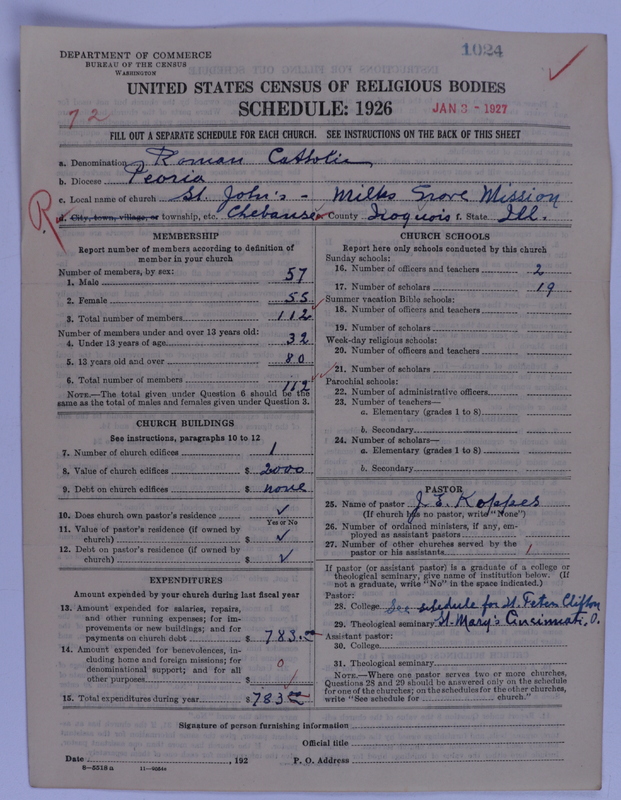 1024
DEPARTMENT OF COMMERCE
BUREAU OF THE CENSUS
WASHINGTON
UNITED STATES CENSUS OF RELIGIOUS BODIES
SCHEDULE: 1926
JAN 3 - 1927
72
FILL OUT A SEPARATE SCHEDULE FOR EACH CHURCH. SEE INSTRUCTIONS ON THE BACK OF THIS SHEET
a. Denomination Roman Catholic
b. Diocese Peoria
c. Local name of church St. John's - Milks Grove Mission
R
d. City, town, village, or township, etc. Chebanse e. County Iroquois f. State Ill.
MEMBERSHIP
Report number of members according to definition of
member in your church
Number of members, by sex:
1. Male 57
2. Female 55
3. Total number of members 112
Number of members under and over 13 years old:
4. Under 13 years of age 32
5. 13 years old and over 80
6. Total number of members 112
NOTE.—The total given under Question 6 should be the
same as the total of males and females given under Question 3.
CHURCH BUILDINGS
See instructions, paragraphs 10 to 12
7. Number of church edifices 1
8. Value of church edifices $ 2000
9. Debt on church edifices $ none
10. Does church own pastor's residence ✓
Yes or No
11. Value of pastor's residence (if owned by
church) $ ✓
12. Debt on pastor's residence (if owned by
church) $ ✓
EXPENDITURES
Amount expended by your church during last fiscal year
13. Amount expended for salaries, repairs,
and other running expenses; for im-
provements or new buildings; and for
payments on church debt $ 783.
14. Amount expended for benevolences, in-
cluding home and foreign missions; for
denominational support; and for all
other purposes $ 0
15. Total expenditures during year $ 783.00
CHURCH SCHOOLS
Report here only schools conducted by this church
Sunday schools:
16. Number of officers and teachers 2
17. Number of scholars 19
Summer vacation Bible schools:
18. Number of officers and teachers
19. Number of scholars
Week-day religious schools:
20. Number of officers and teachers
21. Number of scholars
Parochial schools:
22. Number of administrative officers
23. Number of teachers—
a. Elementary (grades 1 to 8)
b. Secondary
24. Number of scholars—
a. Elementary (grades 1 to 8)
b. Secondary
PASTOR
25. Name of pastor J. E. Koppes
(If church has no pastor, write "None")
26. Number of ordained ministers, if any, em-
ployed as assistant pastors
27. Number of other churches served by the
pastor or his assistants 1
If pastor (or assistant pastor) is a graduate of a college or
theological seminary, give name of institution below. (If
not a graduate, write "No" in the space indicated.)
Pastor:
28. College See schedule for St. Peters Clifton
29. Theological seminary St. Mary's Cincinnati, O.
Assistant pastor:
30. College
31. Theological seminary
NOTE.—Where one pastor serves two or more churches,
Questions 28 and 29 should be answered only on the schedule
for one of the churches; on the schedules for the other churches,
write "See schedule for church."
Signature of person furnishing information
Official title
Date , 192 P. O. Address
8—5518a